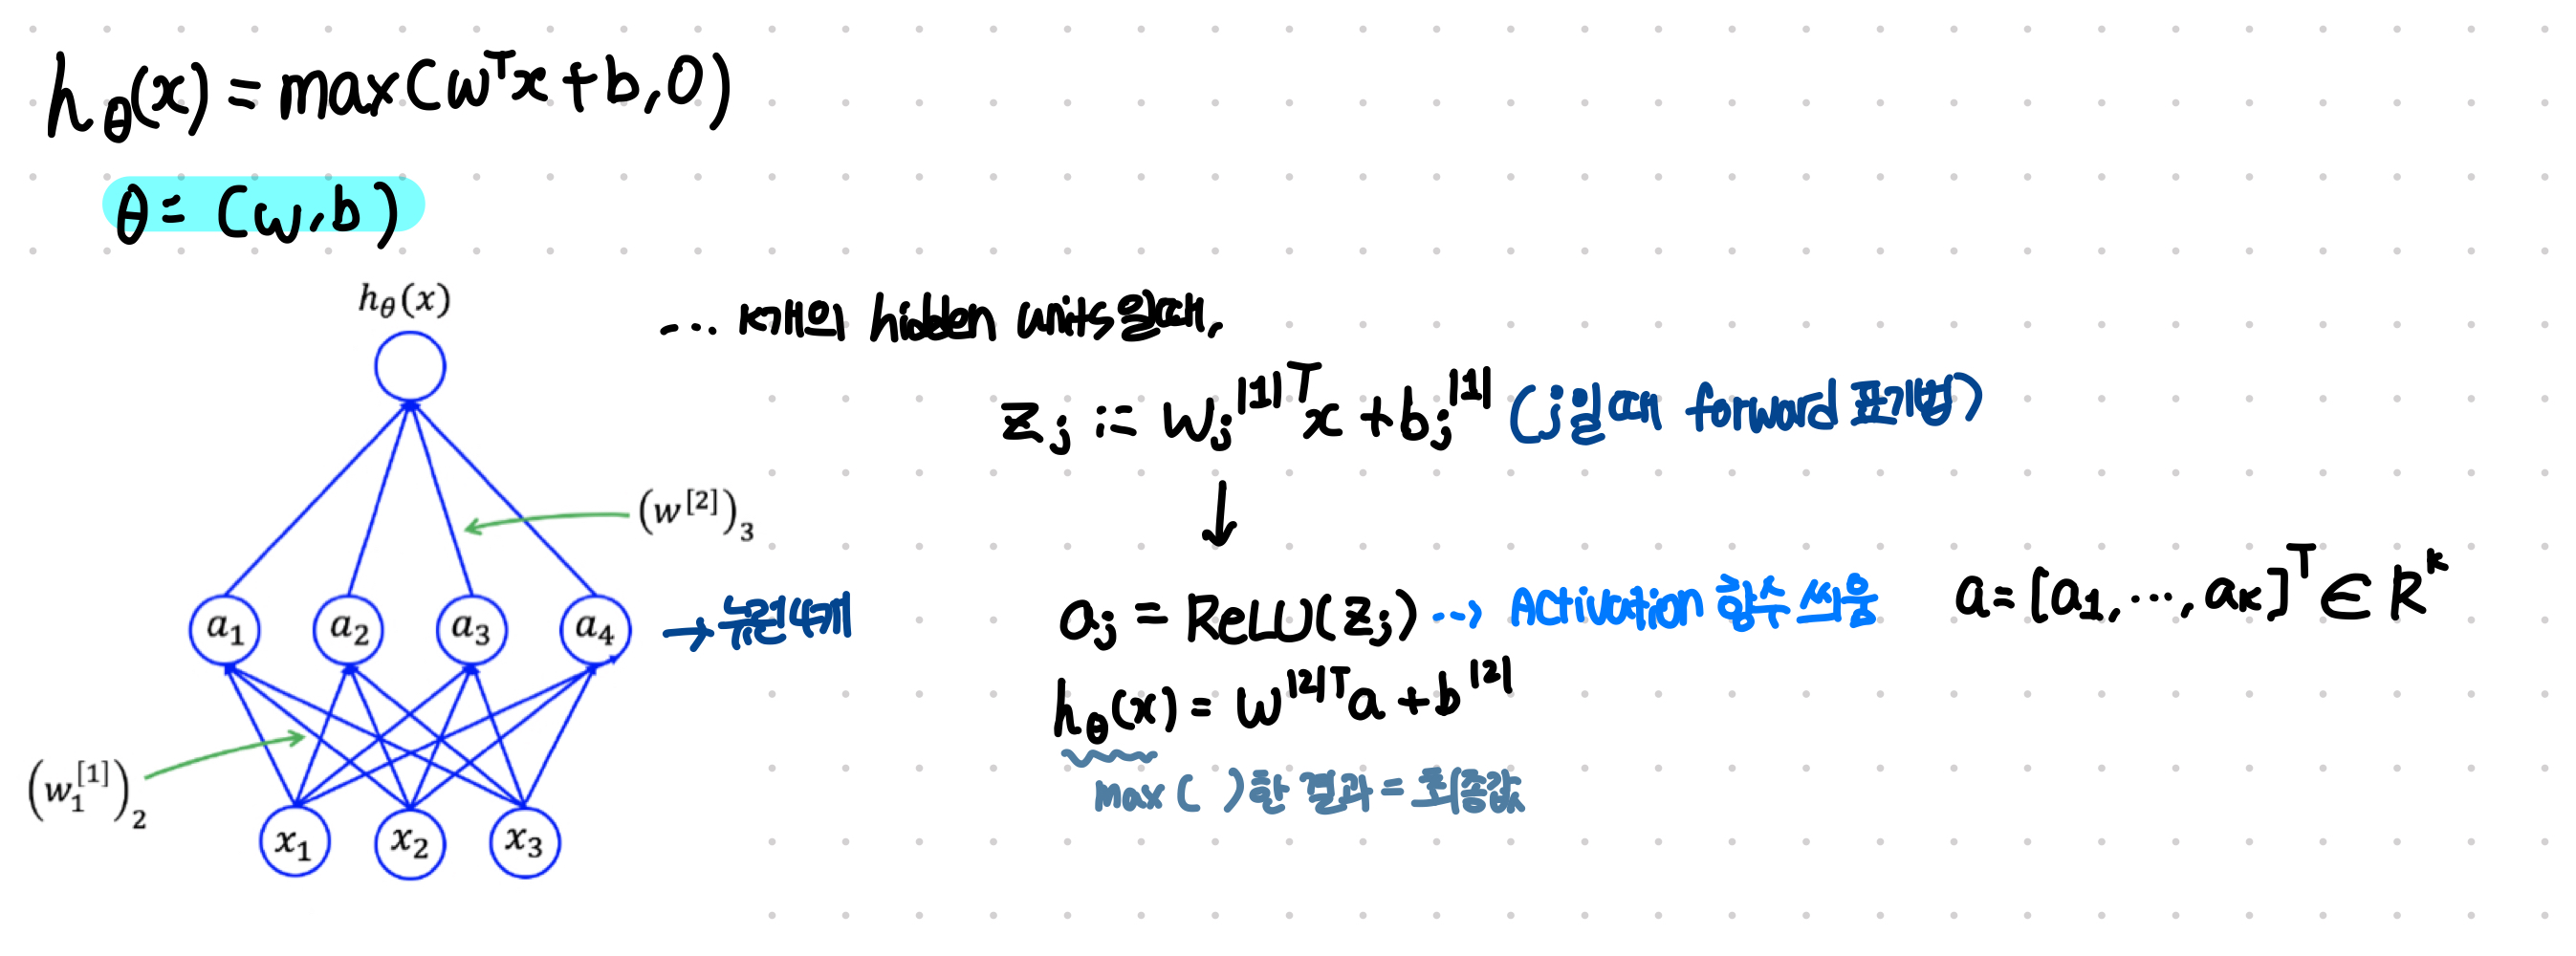 h_θ(x) = max(w^T x + b, 0)
θ = (w, b)
h_θ(x)
... k개의 hidden units일때,
z_j := w_j^{|1|T} x + b_j^{|1|} (j일때 forward 표기법)
↓
(w^{[2]})_3
a_1 a_2 a_3 a_4 → 뉴런 4개
a_j = ReLU(z_j) --> Activation 함수 씌움
a = [a_1, ..., a_k]^T ∈ R^k
h_θ(x) = w^{|2|T} a + b^{|2|}
max( )한 결과 = 최종값
(w_1^{[1]})_2
x_1 x_2 x_3